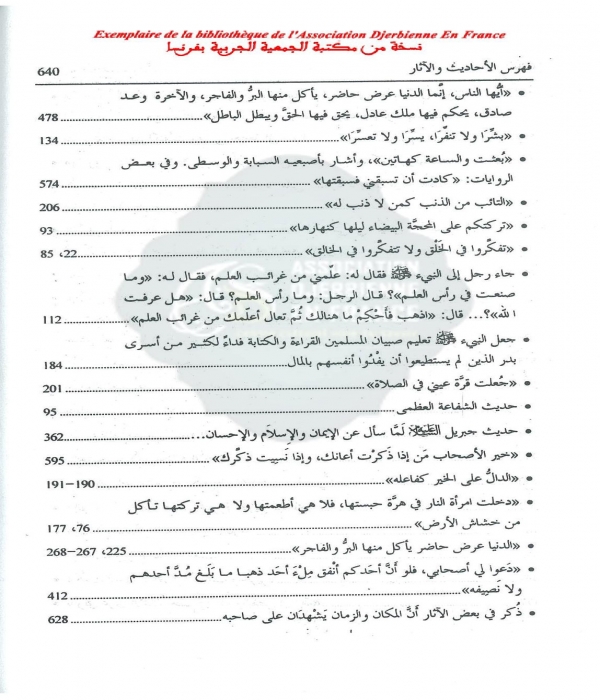 Exemplaire de la bibliothèque de l'Association Djerbienne En France
نسخة من مكتبة الجمعية الجربية بفرنسا
فهرس الأحاديث والآثار 640
• «أيُّها الناس، إنَّما الدنيا عرض حاضر، يأكل منها البرُّ والفاجر، والآخرة وعد
صادق، يحكم فيها ملك عادل، يحق فيها الحقَّ ويبطل الباطل» 478
• «بشِّرَا ولا تنفِّرَا، يسِّرَا ولا تعسِّرَا» 134
• «بُعثت والساعة كهاتين»، وأشار بأصبعيه السبابة والوسطى. وفي بعض
الروايات: «كادت أن تسبقني فسبقتها» 574
• «التائب من الذنب كمن لا ذنب له» 206
• «تركتكم على المحجَّة البيضاء ليلها كنهارها» 93
• «تفكَّروا في الخَلْق ولا تتفكَّروا في الخالق» 22، 85
• جاء رجل إلى النبيء ﷺ فقال له: علِّمني من غرائب العلم، فقال له: «وما
صنعت في رأس العلم»؟ قال الرجل: وما رأس العلم؟ قال: «هل عرفت
الله»؟... قال: «اذهب فأَحْكِمْ ما هنالك ثُمَّ تعال أعلِّمك من غرائب العلم» 112
• جعل النبيء ﷺ تعليم صبيان المسلمين القراءة والكتابة فداءً لكثير من أسرى
بدر الذين لم يستطيعوا أن يفْدُوا أنفسهم بالمال 184
• «جُعلت قرَّة عيني في الصلاة» 201
• حديث الشفاعة العظمى 95
• حديث جبريل العَلَيْهِ السَّلام لَمَّا سأل عن الإيمان والإسلام والإحسان... 362
• «خير الأصحاب مَن إذا ذَكَرْت أعانك، وإذا نَسِيت ذكَّرك» 595
• «الدالُّ على الخير كفاعله» 190-191
• «دخلت امرأة النار في هرَّة حبستها، فلا هي أطعمتها ولا هي تركتها تأكل
من خشاش الأرض» 76، 177
• «الدنيا عرض حاضر يأكل منها البرُّ والفاجر» 225، 267-268
• «دَعوا لي أصحابي، فلو أنَّ أحَدكم أنْفق مِلْءَ أحد ذهبا ما بَلَغ مُدَّ أحدهم
ولا نَصِيفه» 412
• ذُكر في بعض الآثار أنَّ المكان والزمان يَشْهدَان على صاحبه 628